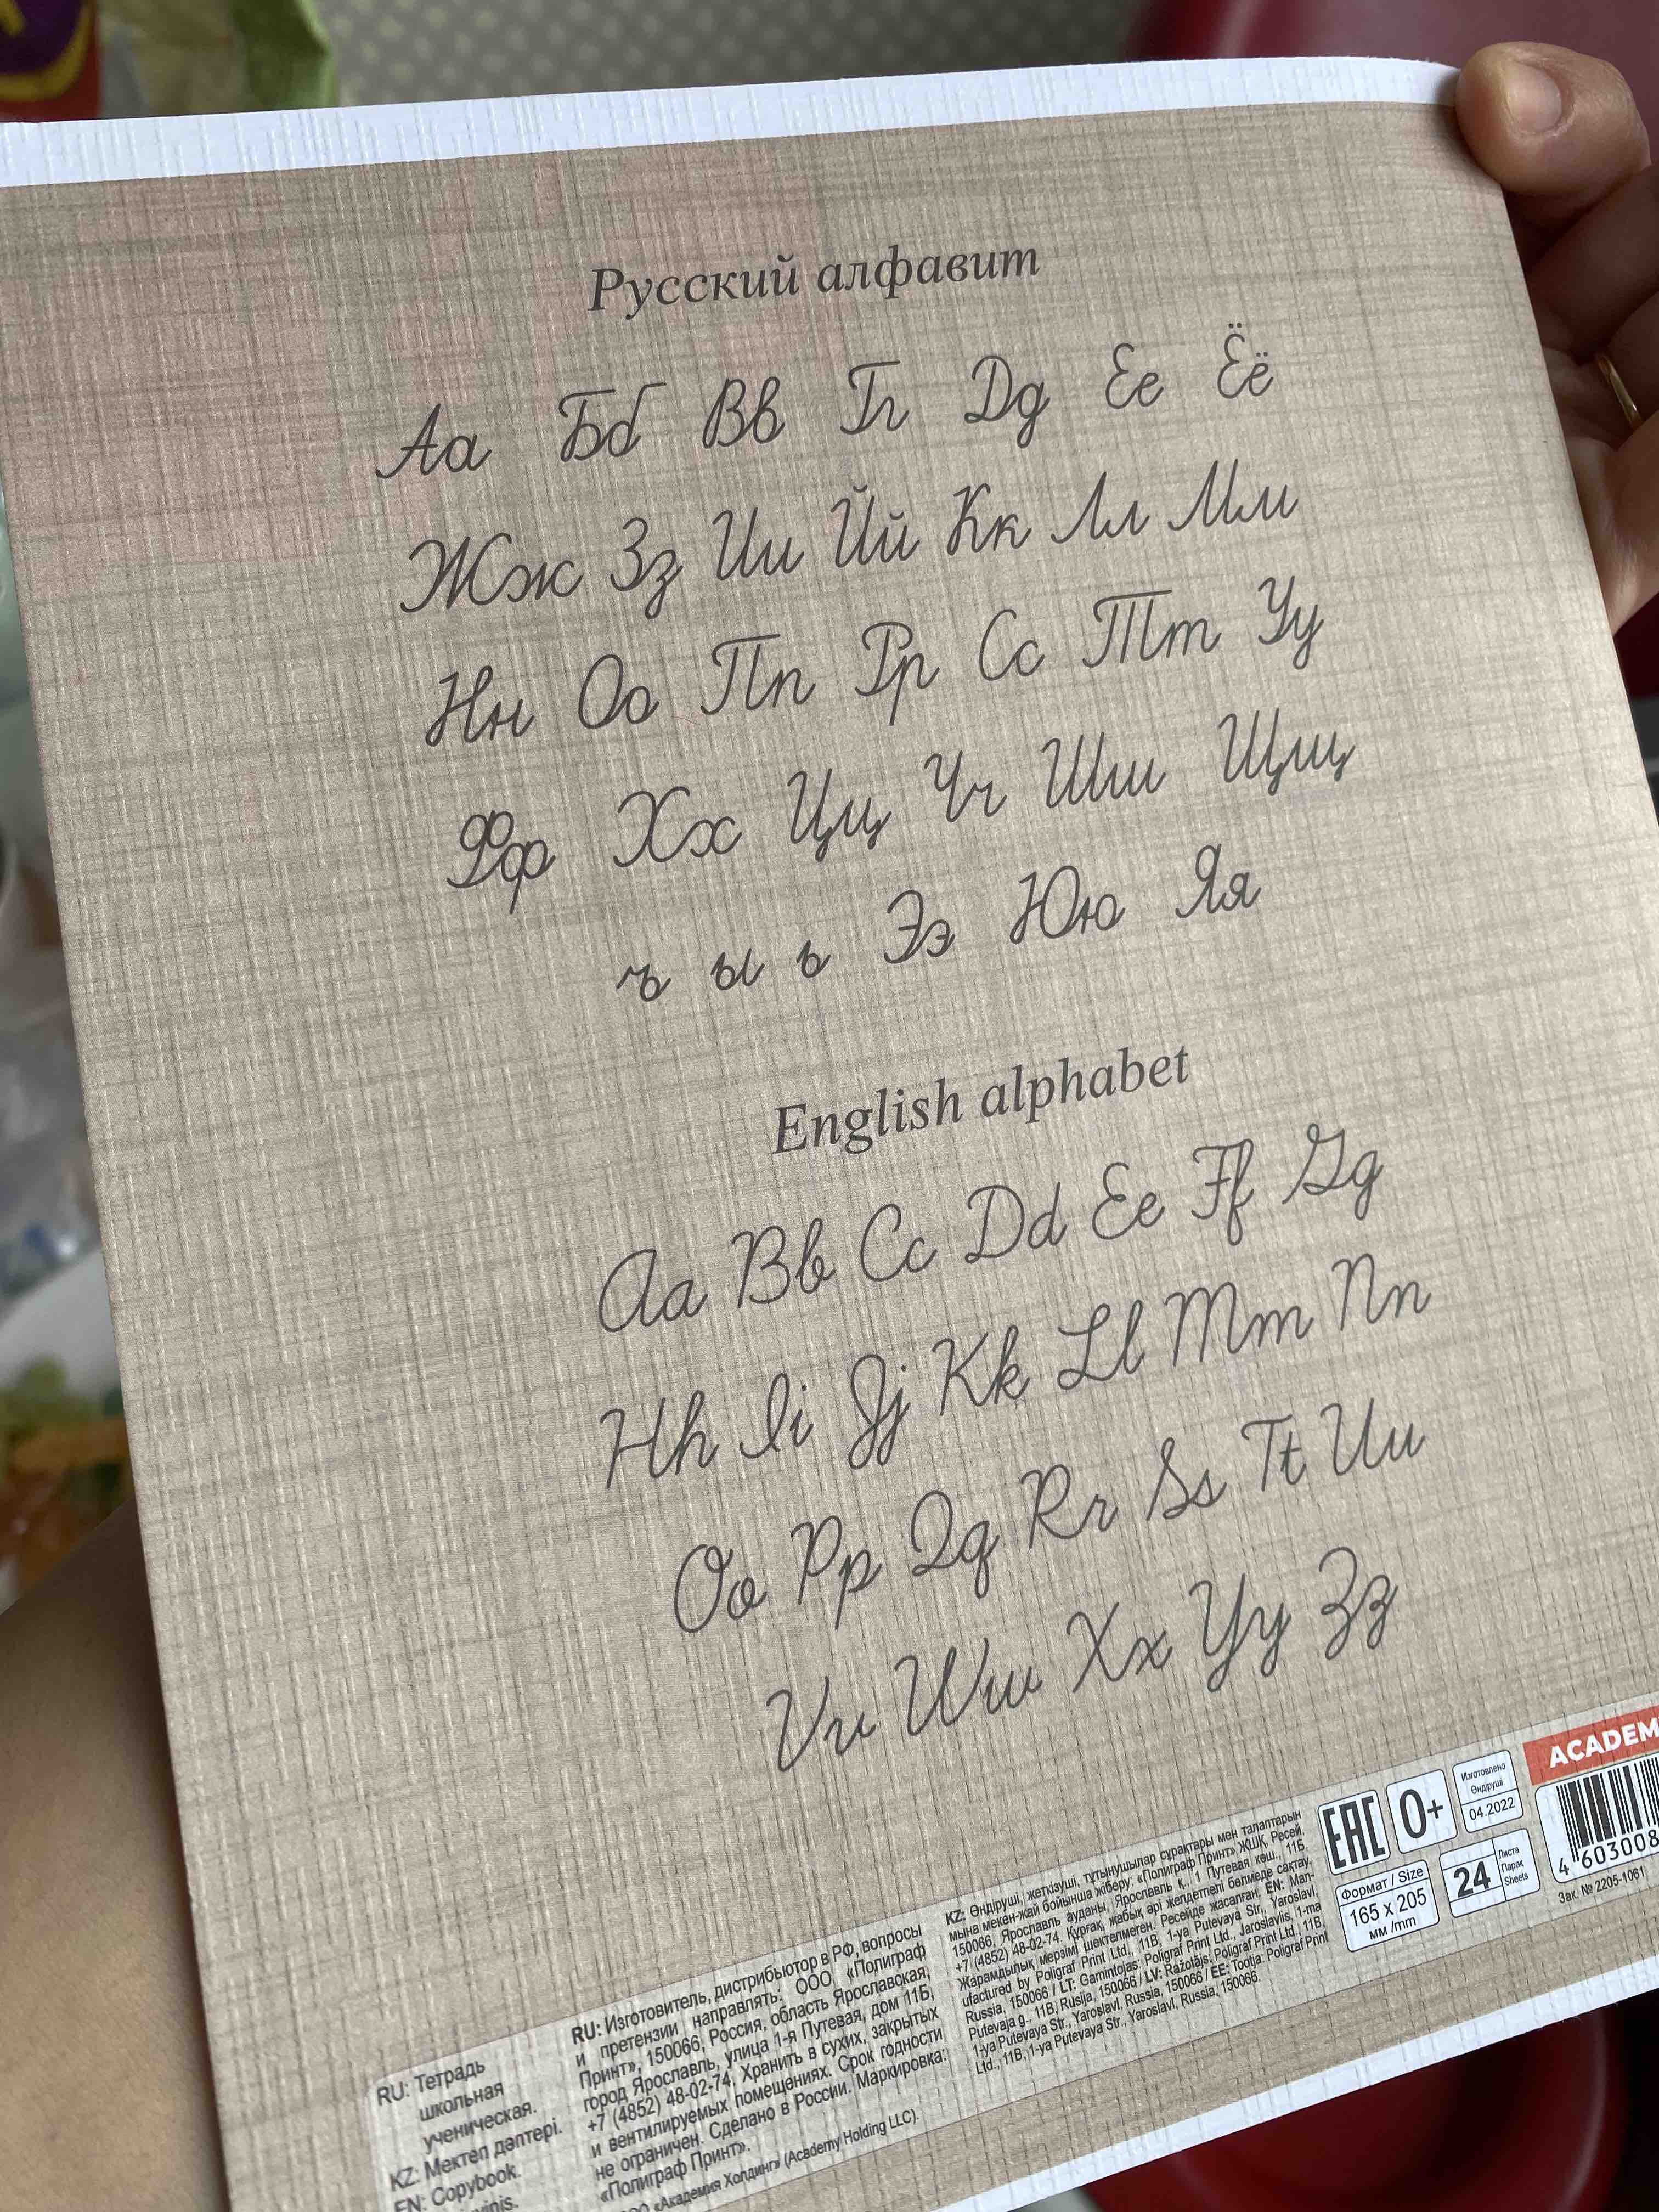 Русский алфавит
Аа Бб Вв Гг Дд Ее Ёё
Жж Зз Ии Йй Кк Лл Мм
Нн Оо Пп Рр Сс Тт Уу
Фф Хх Цц Чч Шш Щщ
ъ ы ь Ээ Юю Яя
English alphabet
Aa Bb Cc Dd Ee Ff Gg
Hh Ii Jj Kk Ll Mm Nn
Oo Pp Qq Rr Ss Tt Uu
Vv Ww Xx Yy Zz
RU: Тетрадь
школьная
ученическая.
KZ: Мектеп дәптері.
EN: Copybook.
RU: Изготовитель, дистрибьютор в РФ, вопросы
и претензии направлять: ООО «Полиграф
Принт», 150066, Россия, область Ярославская,
город Ярославль, улица 1-я Путевая, дом 11Б,
+7 (4852) 48-02-74. Хранить в сухих, закрытых
и вентилируемых помещениях. Срок годности
не ограничен. Сделано в России. Маркировка:
«Полиграф Принт».
«Академия Холдинг» (Academy Holding LLC)
KZ: Өндіруші, жеткізуші, тұтынушылар сұрақтары мен талаптарын
мына мекен-жай бойынша жіберу: «Полиграф Принт» ЖШҚ, Ресей,
150066, Ярославль ауданы, Ярославль қ., 1 Путевая көш., 11Б,
+7 (4852) 48-02-74. Құрғақ, жабық әрі желдетпелі бөлмеде сақтау.
Жарамдылық мерзімі шектелмеген. Ресейде жасалған. EN: Man-
ufactured by Poligraf Print Ltd., 11B, 1-ya Putevaya Str., Yaroslavl,
Russia, 150066 / LT: Gamintojas: Poligraf Print Ltd., Jaroslavlis, 1-ma
Putevaja g., 11B, Rusija, 150066 / LV: Ražotājs: Poligraf Print Ltd., 11B,
1-ya Putevaya Str., Yaroslavl, Russia, 150066 / EE: Tootja: Poligraf Print
Ltd., 11B, 1-ya Putevaya Str., Yaroslavl, Russia, 150066.
EAC
0+
Изготовлено
Өндіруші
04.2022
Формат / Size
165 x 205
мм /mm
24
Листа
Парақ
Sheets
ACADEM
4 603008
Зак. № 2205-1061